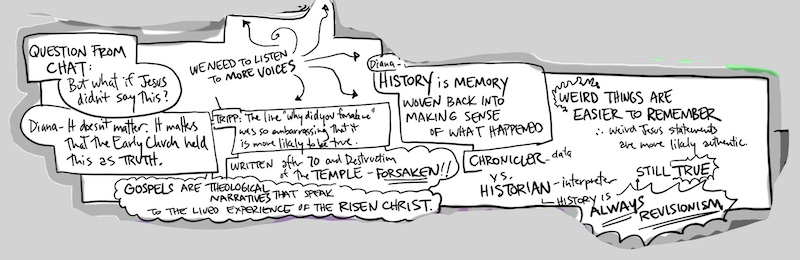 QUESTION FROM
CHAT:
But what if Jesus
didn't say this?
WE NEED TO LISTEN
TO MORE VOICES
Diana- It doesn't matter. It matters
that the Early Church held
this as TRUTH.
TRIPP: The line "why did you forsake me"
was so embarrassing that it
is more likely to be true.
WRITTEN after 70 and Destruction
of the TEMPLE - FORSAKEN!!
GOSPELS ARE THEOLOGICAL
NARRATIVES THAT SPEAK
TO THE LIVED EXPERIENCE OF THE RISEN CHRIST.
Diana-
HISTORY is MEMORY
WOVEN BACK INTO
MAKING SENSE
OF WHAT HAPPENED
CHRONICLER - data
vs.
HISTORIAN - interpreter
HISTORY IS
ALWAYS
REVISIONISM
STILL TRUE
WEIRD THINGS ARE
EASIER TO REMEMBER
∴ weird Jesus statements
are more likely authentic.